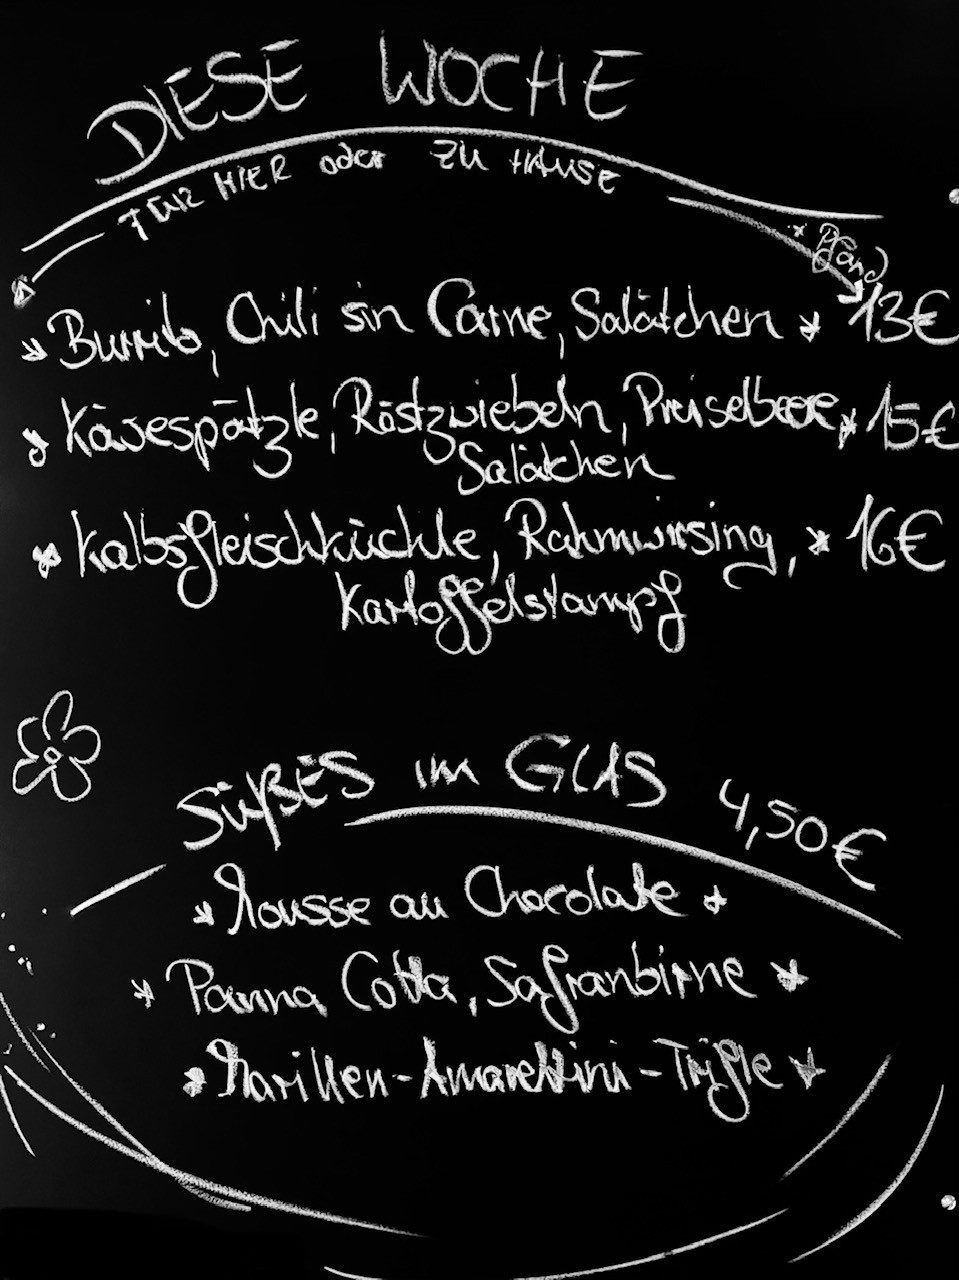 DIESE WOCHE
FÜR HIER oder ZU HAUSE
* Pfand
* Burrito, Chili sin Carne, Salätchen * 13€
* Käsespätzle, Röstzwiebeln, Preiselbeere, * 15€
Salätchen
* Kalbsfleischküchle, Rahmwirsing, * 16€
Kartoffelstampf
SÜßES im GLAS 4,50€
* Mousse au Chocolate *
* Panna Cotta, Safranbirne *
* Marillen-Amarettini-Trifle *